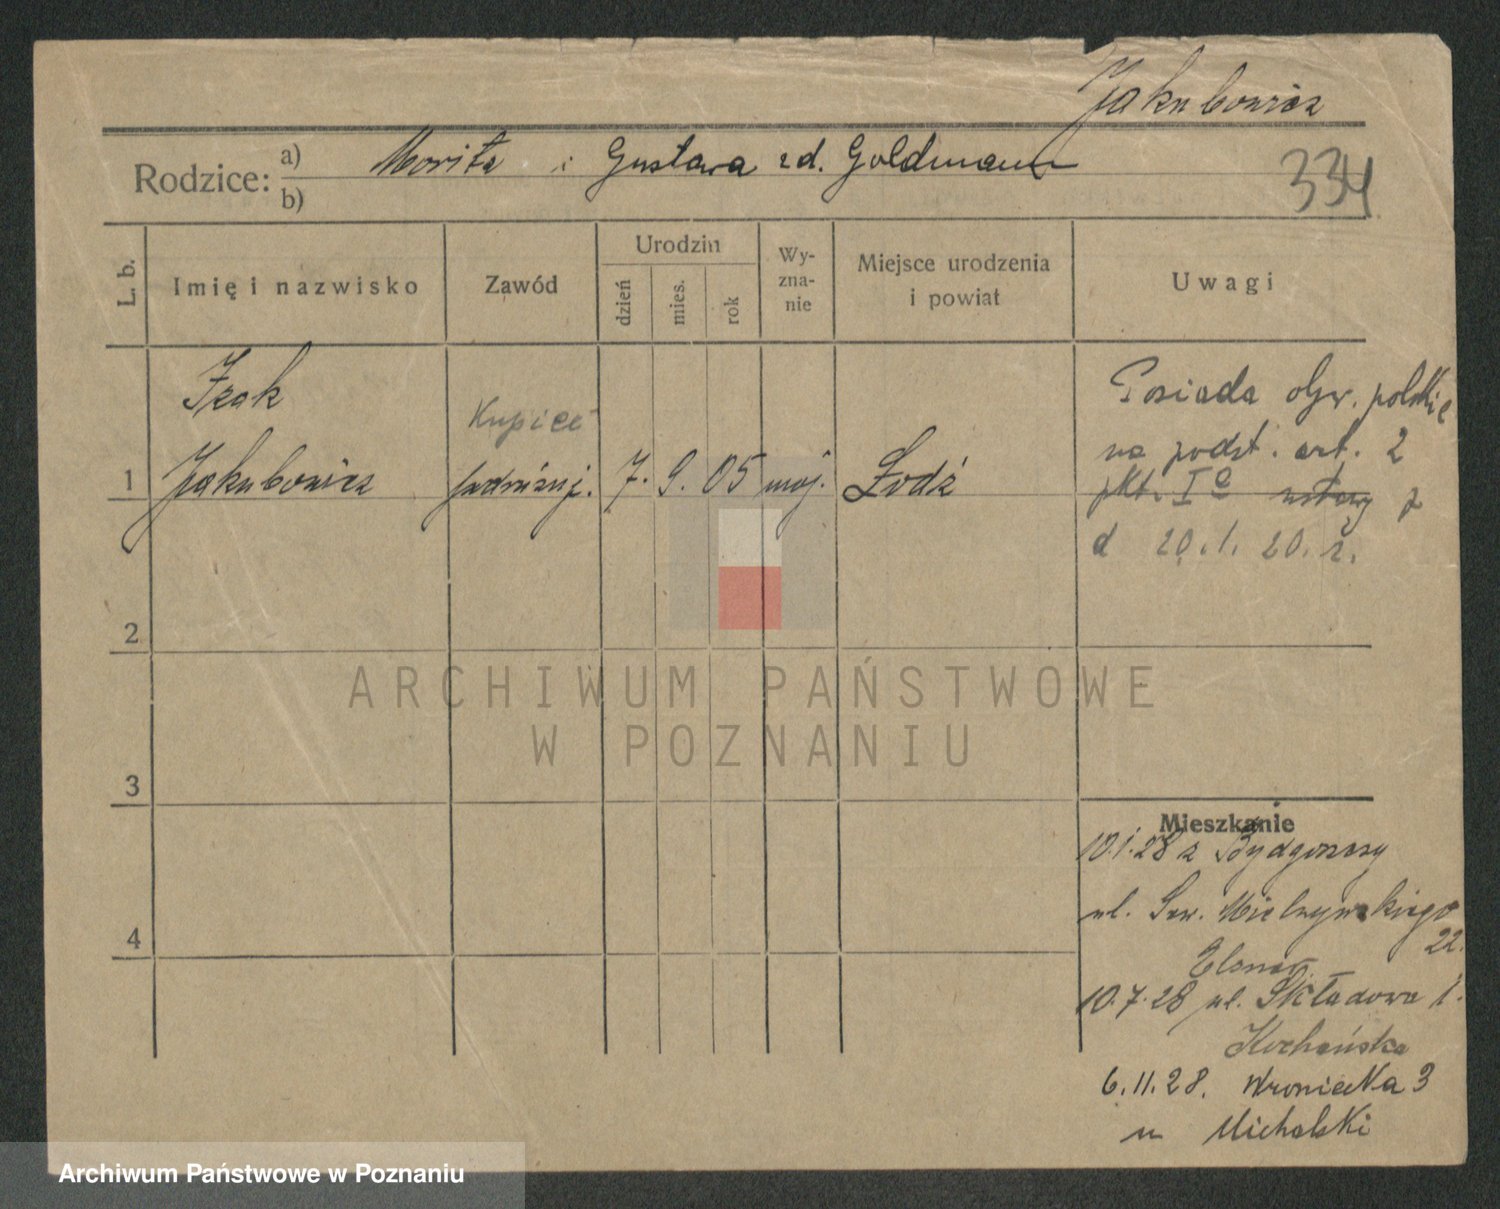 Jakubowicz
Rodzice: a) Moritz i Gustawa zd. Goldmann
b)
334
L. b.
Imię i nazwisko
Zawód
Urodzin
dzień
mies.
rok
Wy-
zna-
nie
Miejsce urodzenia
i powiat
Uwagi
Izak
Kupiec
1 Jakubowicz
7. 9. 05 moj. Łódź
Posiada obyw. polskie
na podst. art. 2
pkt. I a ustawy z
d 20.1.20. r.
2
3
4
Mieszkanie
10.1.28 z Bydgoszczy
ul. Sew. Mielżyńskiego
22.
10.7.28 ul. Składowa 1.
Kochańska
6.11.28. Wroniecka 3
u Michalski
ARCHIWUM PAŃSTWOWE
W POZNANIU
Archiwum Państwowe w Poznaniu